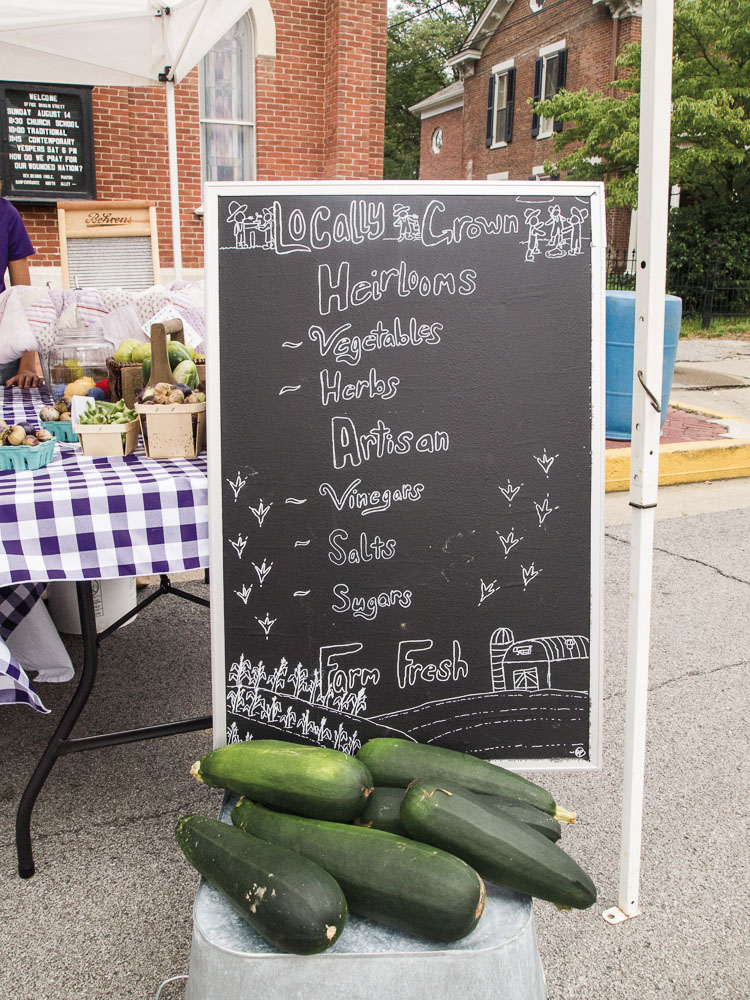 WELCOME
SUNDAY AUGUST 14
9:30 CHURCH SCHOOL
10:00 TRADITIONAL
11:45 CONTEMPORARY
VESPERS SAT 6 PM
HOW DO WE PRAY FOR
OUR WOUNDED NATION?
Behrens
Locally Grown
Heirlooms
~ Vegetables
~ Herbs
Artisan
~ Vinegars
~ Salts
~ Sugars
Farm Fresh